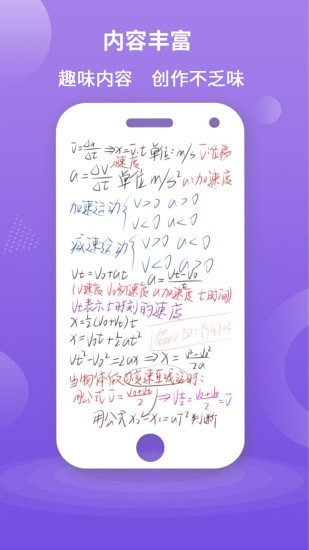 内容丰富
趣味内容 创作不乏味
v̄=Δx/Δt ⇒x=v̄·t 单位:m/s v̄:
速度
a=ΔV/Δt 单位 m/s² a:加速度
加速运动{V>0 a>0
V<0 a<0
减速运动{V>0 a<0
V<0 a>0
Vt=V₀+at a=(Vt-V₀)/t
(V速度 V₀初速度 a加速度 t时间)
Vt表示t时刻的速度
x=½(V₀+Vt)t
x=V₀t+½at²
Vt²-V₀²=2ax ⇒x=(V²-V₀²)/2a
当物体做匀变速直线运时:
用公式 v̄=(V₀+Vt)/2 ⇒V t/2=(V₀+Vt)/2=v̄
用公式x₂-x₁=aT²判断